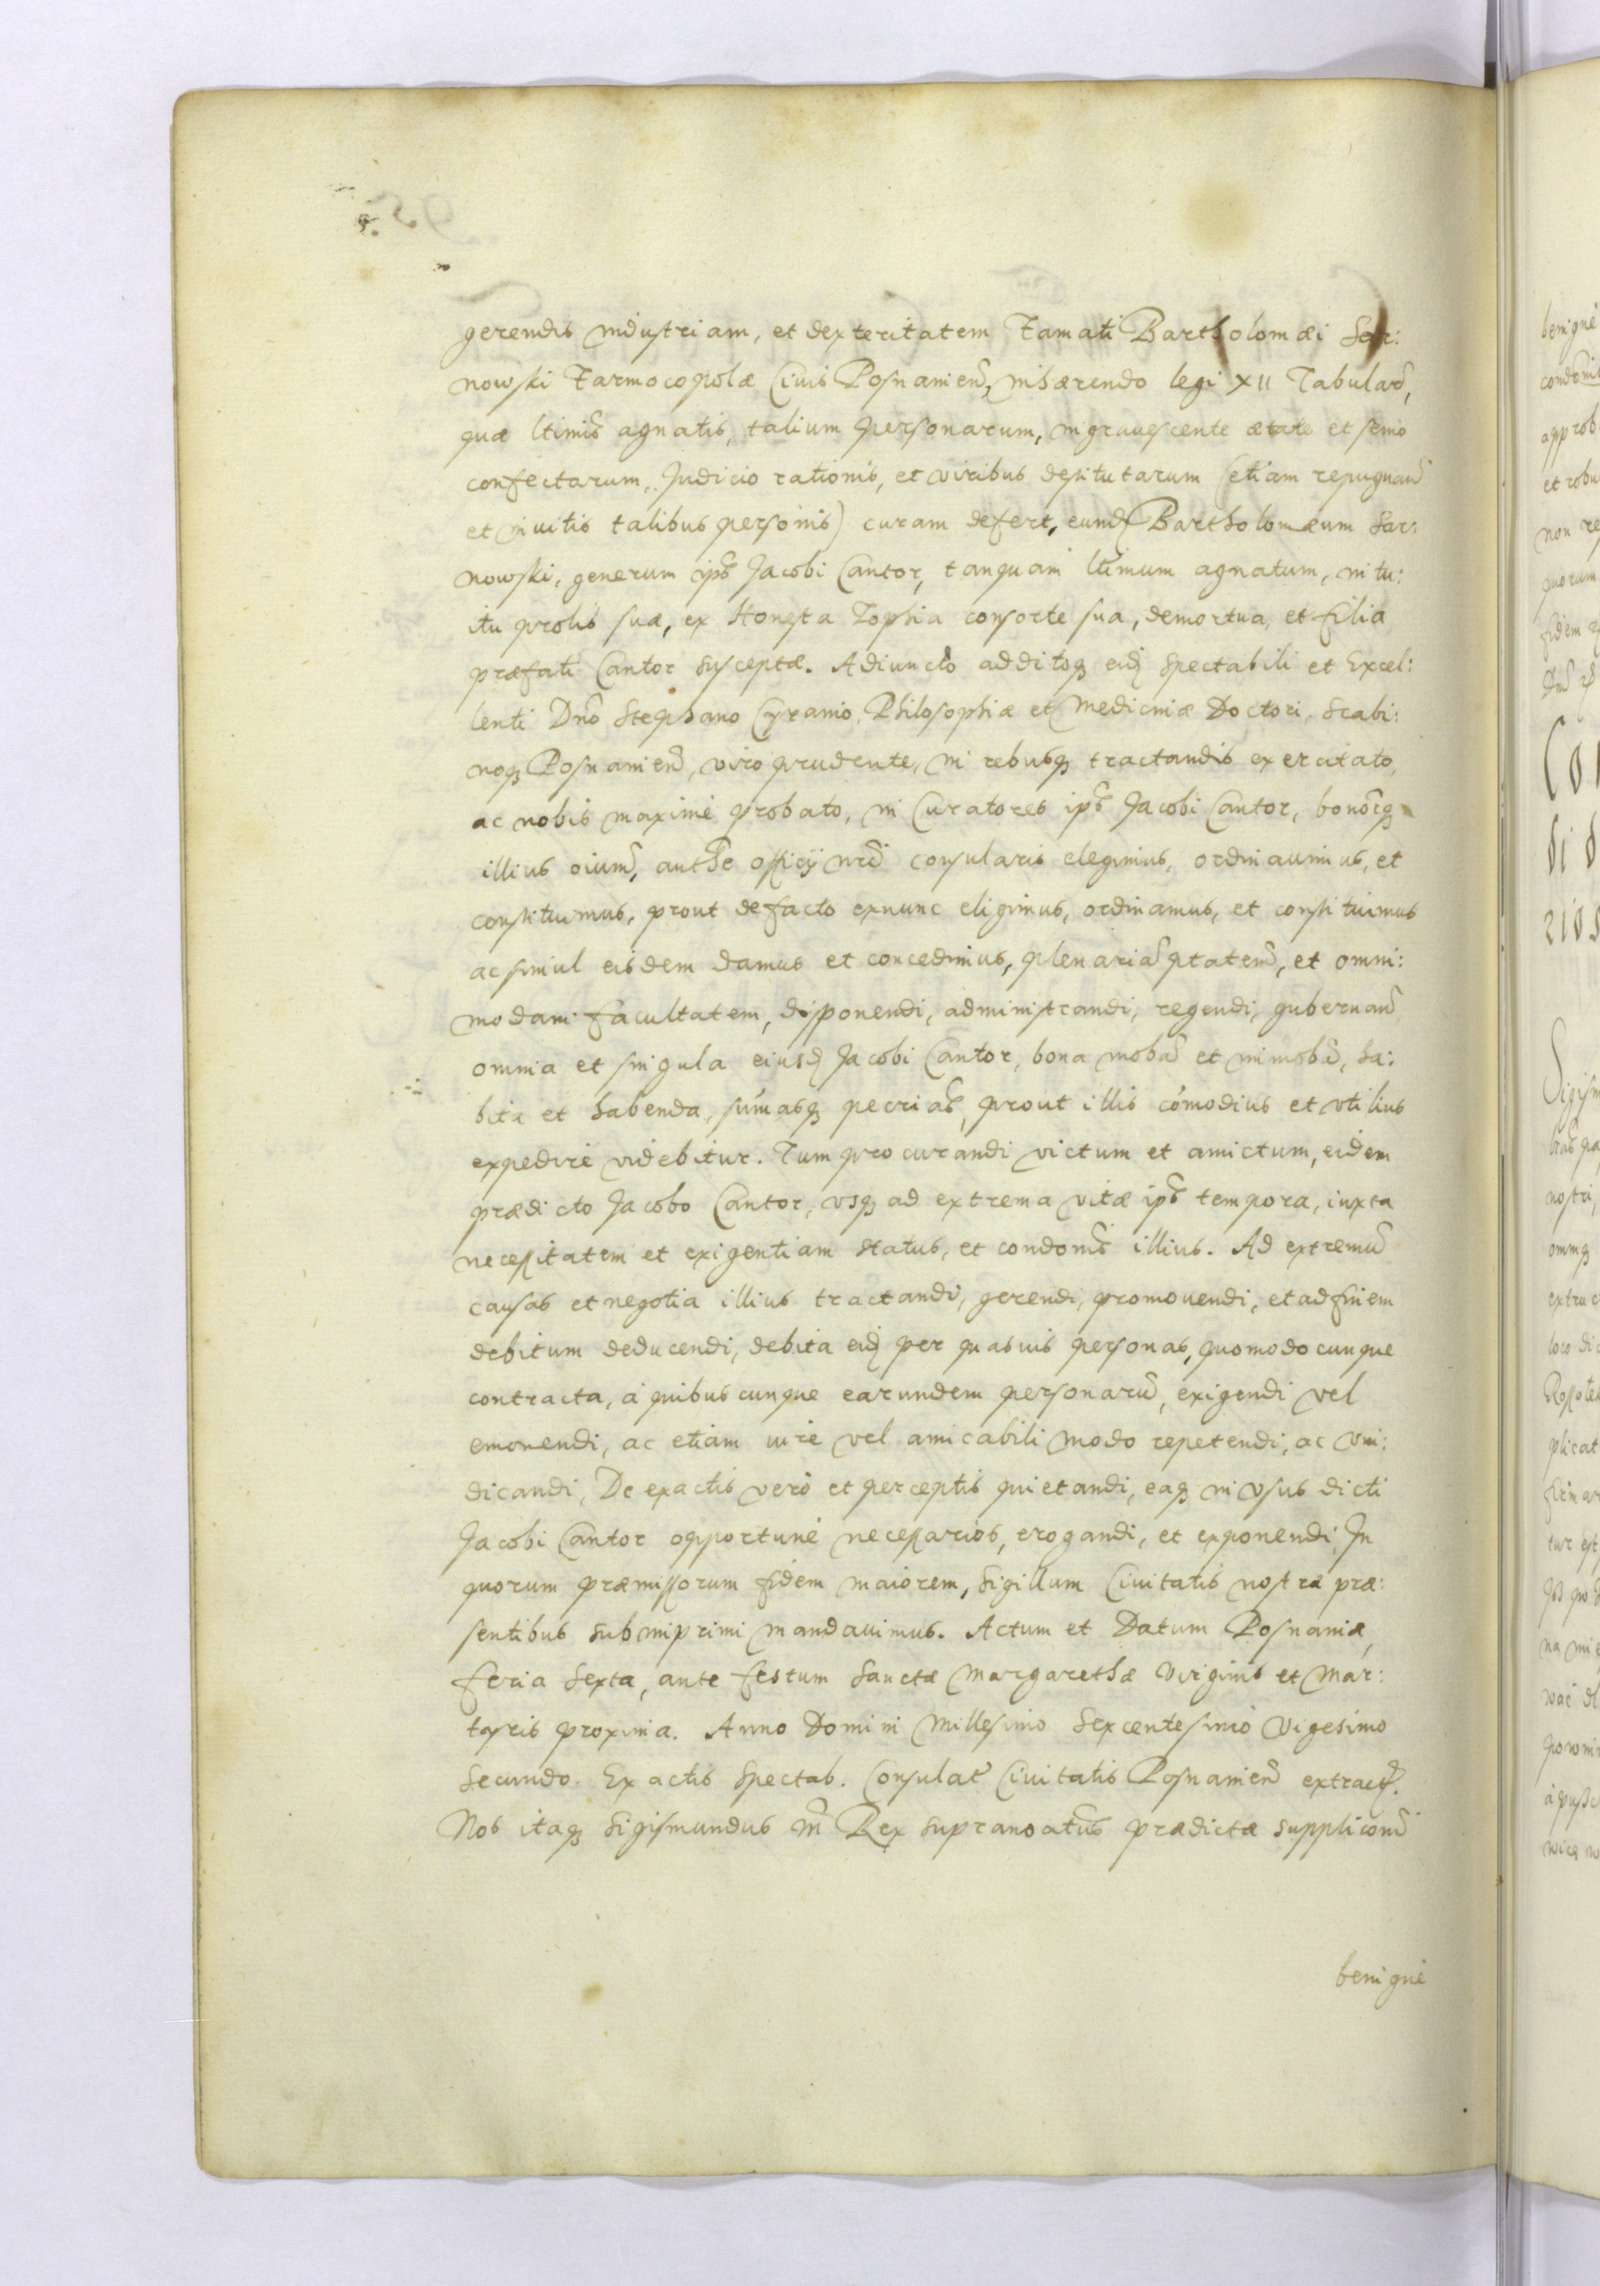 gerendis industriam, et dexteritatem Famati Bartholomæi Sar:
nowski Farmocopolæ Ciuis Posnanien, inhærendo legi XII Tabular,
quæ ltimis agnatis, talium personarum, ingrauescente ætate et senio
confectarum, Judicio rationis, et viribus destitutarum (etiam repugnan
et inuitis talibus personis) curam defert, eund Bartholomæum Sar:
nowski, generum ips Jacobi Cantor, tanquam ltimum agnatum, intu:
itu prolis suæ, ex Honesta Zophia consorte sua, demortua, et filia
præfati Cantor susceptæ. Adiuncto additoq eid Spectabili et Excel:
lenti Dno Stephano Cyranio, Philosophiæ et Medicinæ Doctori, Scabi:
noq Posnanien, viro prudente, in rebusq tractandis exercitato,
ac nobis maximè probato, in Curatores ips Jacobi Cantor, bonorq
illius oium, authe officij nri consularis elegimus, ordinauimus, et
constituimus, prout de facto exnunc eligimus, ordinamus, et constituimus
ac simul eisdem damus et concedimus, plenaria ptatem, et omni:
modam facultatem, disponendi, administrandi, regendi, gubernan
omnia et singula eiusd Jacobi Cantor, bona moba et immoba, ha:
bita et habenda, sumasq pecrias, prout illis comodius et vtilius
expedire videbitur. Tum procurandi victum et amictum, eidem
prædicto Jacobo Cantor, vsq ad extrema vitæ ips tempora, iuxta
necessitatem et exigentiam status, et condonis illius. Ad extremu
causas et negotia illius tractandi, gerendi, promouendi, et ad finem
debitum deducendi, debita eid per quasuis personas, quomodocunque
contracta, à quibuscunque earundem personaru, exigendi vel
emonendi, ac etiam iure vel amicabili modo repetendi, ac vin:
dicandi, De exactis verò et perceptis quietandi, eaq in vsus dicti
Jacobi Cantor opportunè necessarios, erogandi, et exponendi, In
quorum præmissorum fidem maiorem, Sigillum Ciuitatis nostra præ:
sentibus subimprimi mandauimus. Actum et Datum Posnaniæ,
feria Sexta, ante festum Sanctæ Margarethæ Virginis et Mar:
tyris proxima. Anno Domini Millesimo Sexcentesimo Vigesimo
Secundo. Ex actis Spectab. Consulat Ciuitatis Posnanien extract.
Nos itaq Sigismundus III Rex supranoatus prædictæ suppliconi
benignè